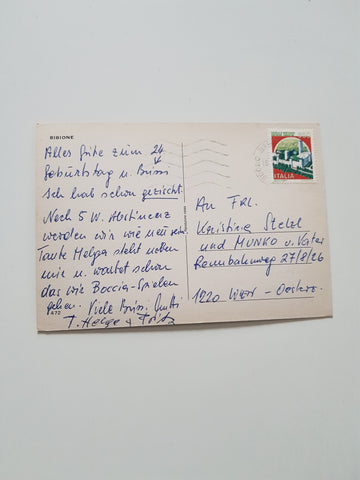 BIBIONE
Alles Gute zum 24
Geburtstag u. Bussi
Ich hab schon gezischt.
Nach 5 W. Abstinenz
werden wir wie neu sein
Tante Helga steht neben
mir u. wartet schon
das wir Boccia-Spielen
gehen. Viele Bussi. Mutti
T. Helga + Fritz
472
ITALIA
An FRL.
Kristina Stelzl
und MUNKO u. Vater
Rennbahnweg 27/8/26
1220 WIEN - Österr.